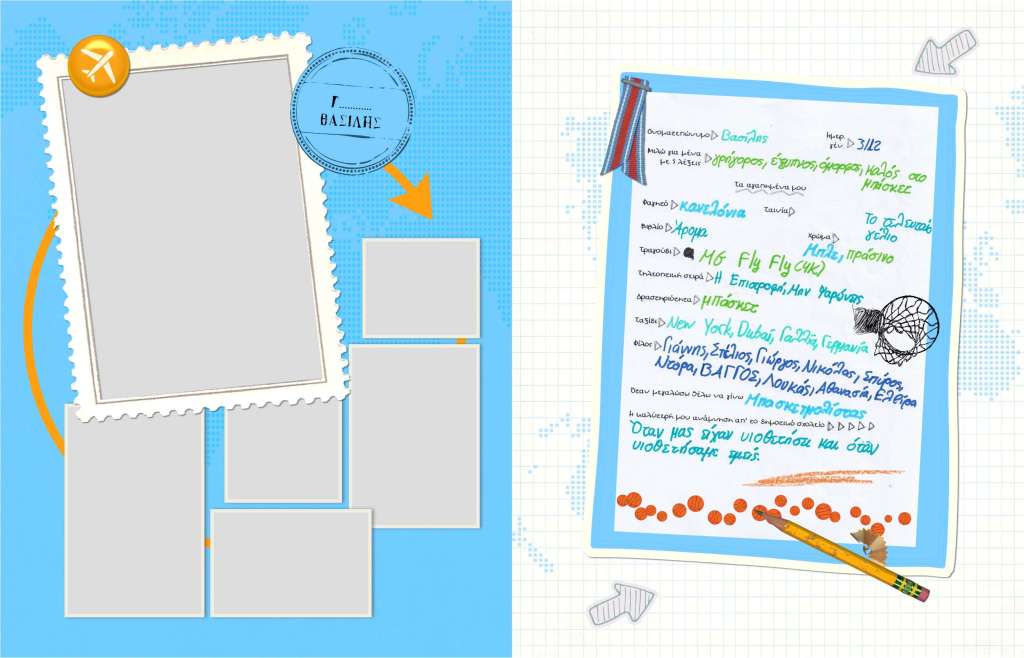 Γ..........
ΒΑΣΙΛΗΣ
Ονοματεπώνυμο Βασίλης
Ημερ. γέν. 3/12
Μιλώ για μένα
με 5 λέξεις γρήγορος, έξυπνος, όμορφος, καλός στο
μπάσκετ
τα αγαπημένα μου
Φαγητό κανελόνια
Ταινία Το τελευταίο
γέλιο
Βιβλίο Άρομα
Χρώμα Μπλε, πράσινο
Τραγούδι MG Fly Fly (4K)
Τηλεοπτική σειρά Η Επιστροφή, Μην Ψαρώνεις
Δραστηριότητα μπάσκετ
Ταξίδι New York, Dubai, Γαλλία, Γερμανία
Φίλοι Γιάννης, Στέλιος, Γιώργος, Νικόλας, Σπύρος,
Ντόρα, ΒΑΓΓΟΣ, Λουκάς, Αθανασία, Ελβίρα
Όταν μεγαλώσω θέλω να γίνω Μπασκετμπολίστας
Η καλύτερή μου ανάμνηση απ' το δημοτικό σχολείο
Όταν μας είχαν υιοθετήσει και όταν
υιοθετήσαμε εμείς.